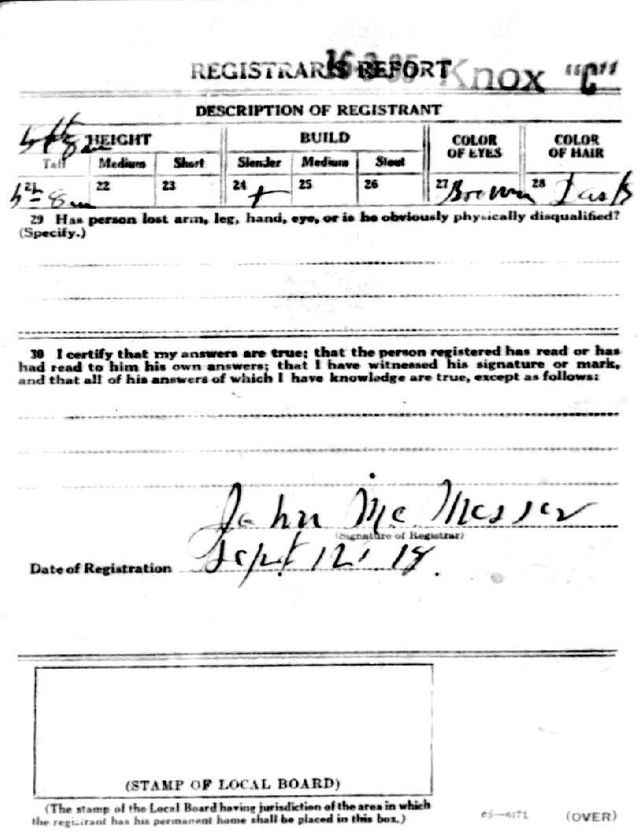 REGISTRAR'S REPORT Knox "C"
DESCRIPTION OF REGISTRANT
HEIGHT BUILD COLOR OF EYES COLOR OF HAIR
Tall Medium Short Slender Medium Stout
21 22 23 24 + 25 26 27 Brown 28 Dark
29 Has person lost arm, leg, hand, eye, or is he obviously physically disqualified?
(Specify.)
30 I certify that my answers are true; that the person registered has read or has
had read to him his own answers; that I have witnessed his signature or mark,
and that all of his answers of which I have knowledge are true, except as follows:
John Mc Messer
(Signature of Registrar)
Date of Registration Sept 12 18
(STAMP OF LOCAL BOARD)
(The stamp of the Local Board having jurisdiction of the area in which
the registrant has his permanent home shall be placed in this box.)
(OVER)